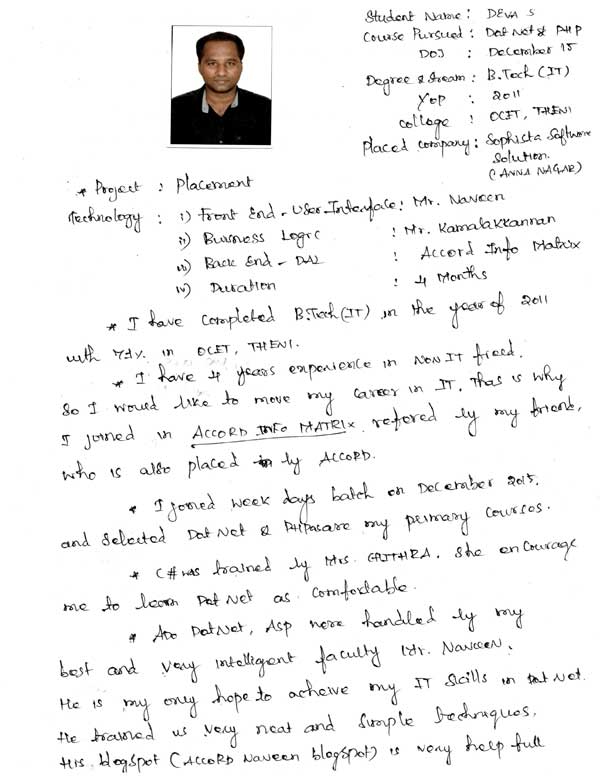 Student Name : DEVA S
Course Pursued : Dot Net & PHP
DOJ : December 15
Degree & Stream : B.Tech (IT)
YOP : 2011
College : OCET, THENI
Placed Company : Sophista Software
Solution.
(ANNA NAGAR)
* Project : Placement
Technology : i) Front End - User Interface : Mr. Naveen
ii) Business Logic : Mr. Kamalakkannan
iii) Back End - DAL : Accord Info Matrix
iv) Duration : 4 Months
* I have completed B.Tech (IT) in the year of 2011
with 71% in OCET, THENI.
* I have 4 years experience in NON IT field.
So I would like to move my career in IT. Thas is why
I joined in ACCORD INFO MATRIX refered by my friend,
who is also placed by ACCORD.
* I joined week days batch on December 2015.
and selected Dot Net & PHP as are my primary courses.
* C# was trained by Mrs. GAITHRA. She encourage
me to learn Dot Net as comfortable.
* ADO Dot Net, ASP were handled by my
best and very intelligent faculty Mr. Naveen.
He is my only hope to acheive my IT Skills in Dot Net.
He trained us very neat and simple techniques.
His blogspot (ACCORD Naveen blogspot) is very help full